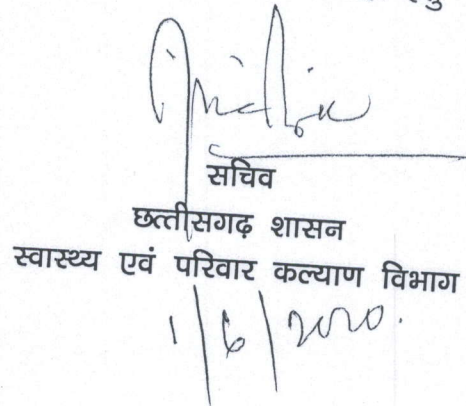 सचिव
छत्तीसगढ़ शासन
स्वास्थ्य एवं परिवार कल्याण विभाग
1/6/2020.